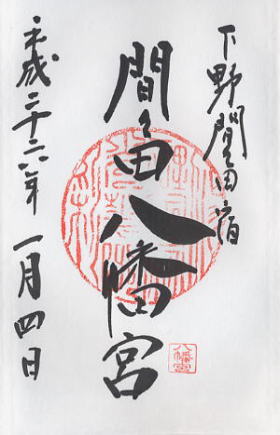 下野間々田宿
間々田八幡宮
平成二十六年 一月四日